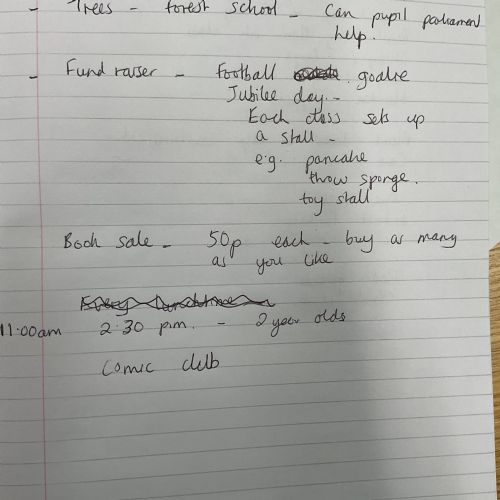 - Trees - forest school - Can pupil parliament
help.
- Fund raiser - football goalie
Jubilee day -
Each class sets up
a stall -
e.g. pancake
throw sponge.
toy stall
Book sale - 50p each - buy as many
as you like
Every lunchtime
11:00am 2:30 p.m. - 2 year olds
Comic club